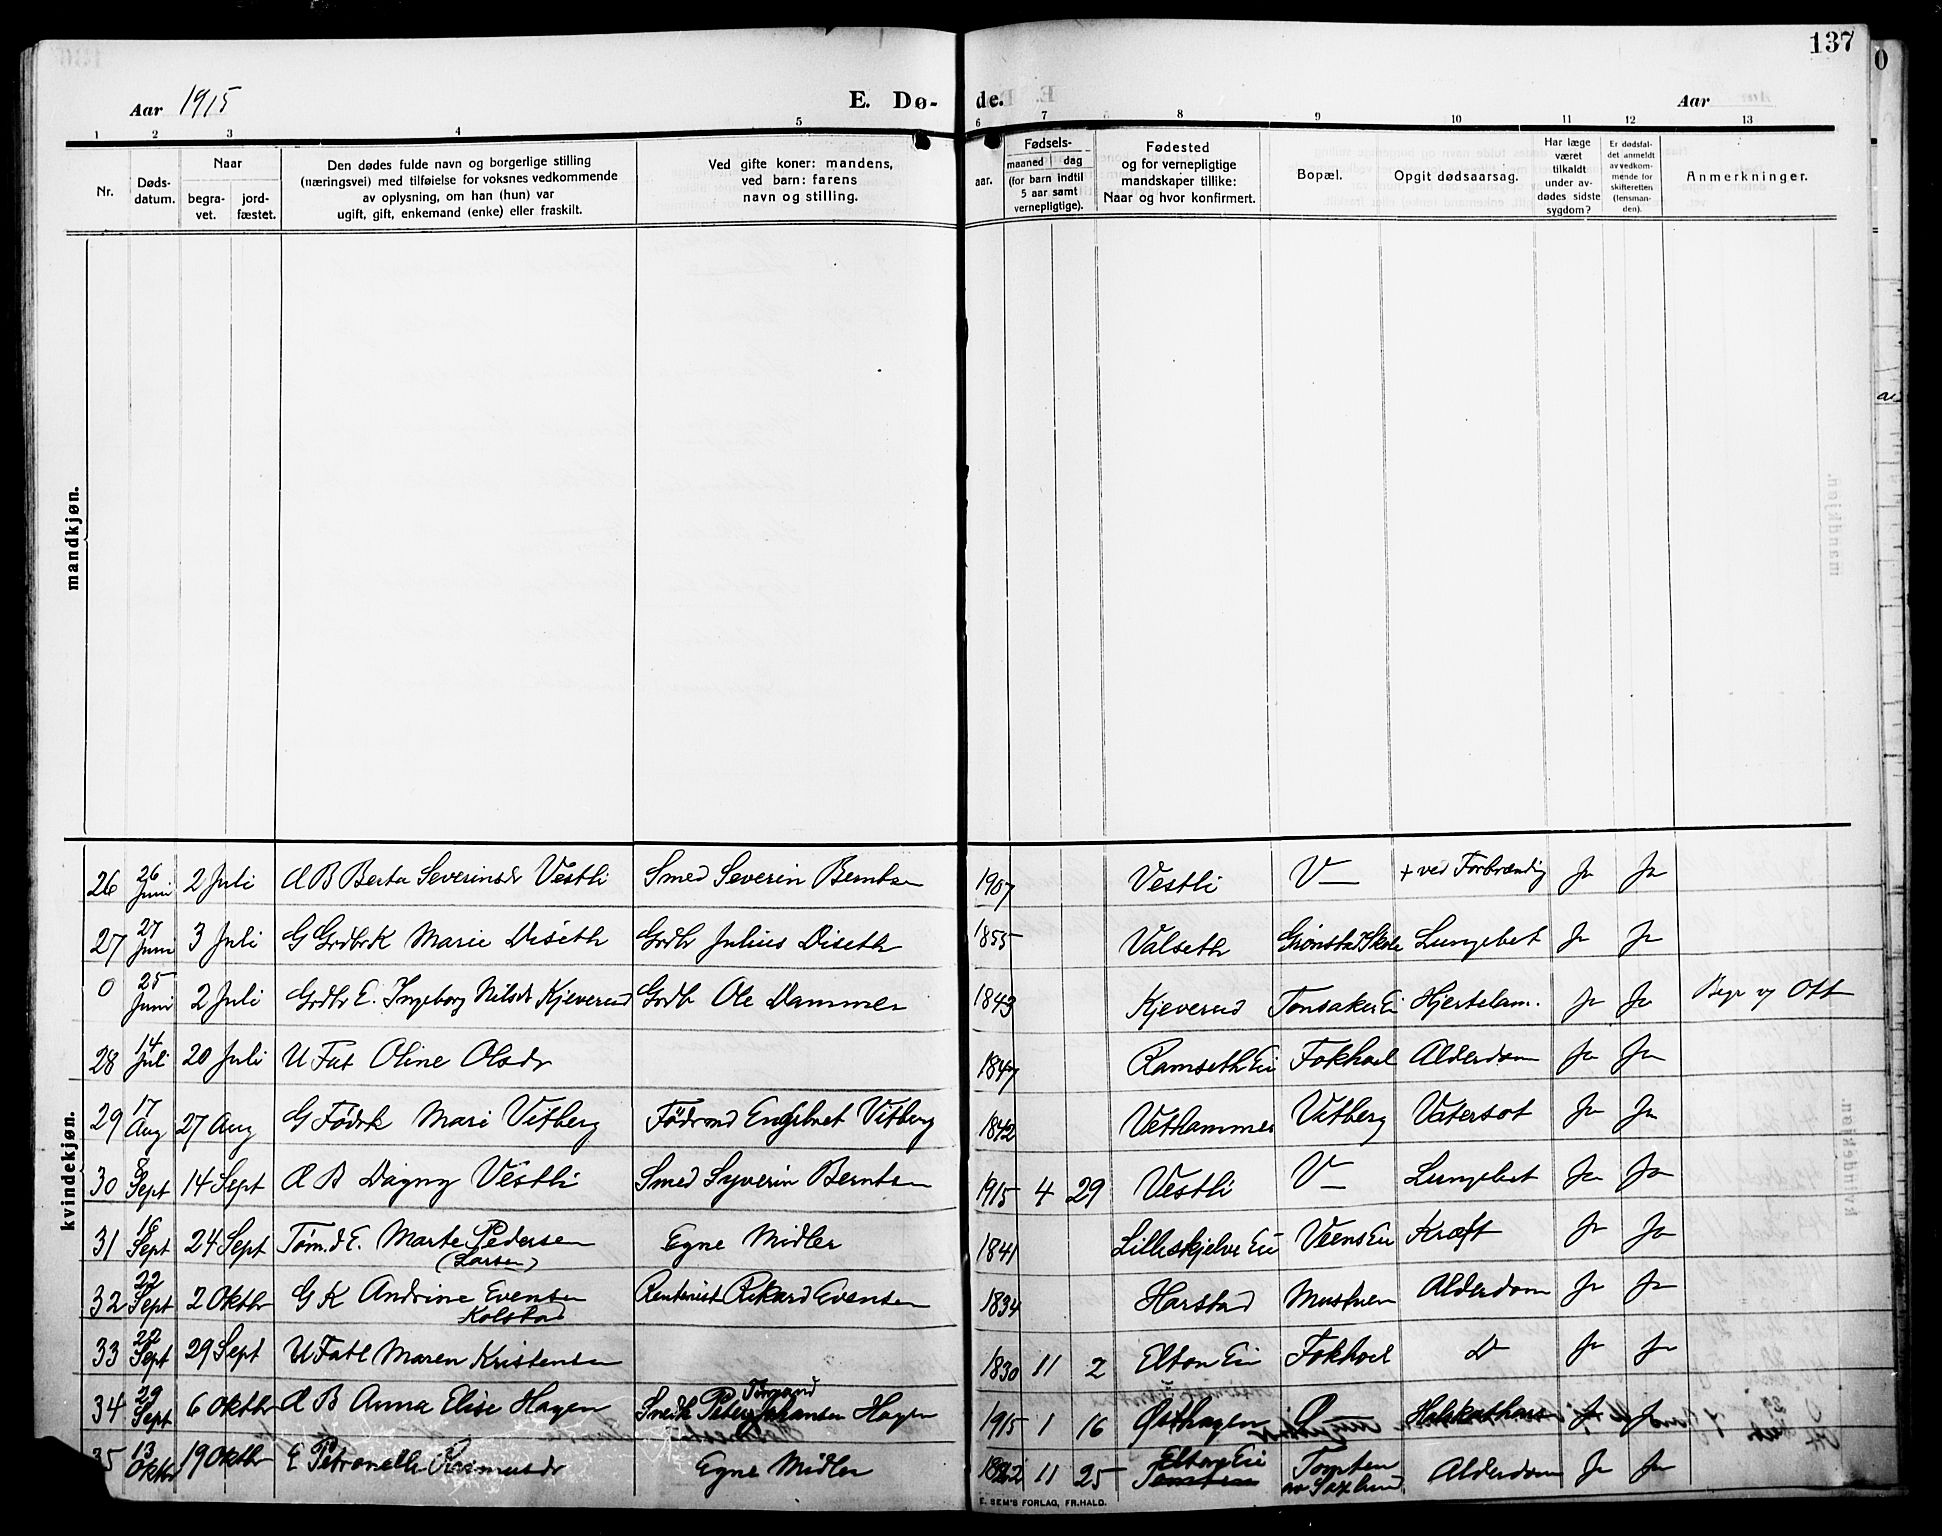 137
Aar 1915
E. Dø-
de.
Aar
1 2 3 4 5 6 7 8 9 10 11 12 13
Nr.
Døds-
datum.
Naar
begra-
vet.
jord-
fæstet.
Den dødes fulde navn og borgerlige stilling
(næringsvei) med tilføielse for voksnes vedkommende
av oplysning, om han (hun) var
ugift, gift, enkemand (enke) eller fraskilt.
Ved gifte koner: mandens,
ved barn: farens
navn og stilling.
aar.
Fødsels-
maaned dag
(for barn indtil
5 aar samt
vernepligtige).
Fødested
og for vernepligtige
mandskaper tillike:
Naar og hvor konfirmert.
Bopæl.
Opgit dødsaarsag.
Har læge
været
tilkaldt
under av-
dødes sidste
sygdom?
Er dødsfal-
det anmeldt
av vedkom-
mende for
skifteretten
(lensman-
den).
Anmerkninger.
mandkjøn.
kvindekjøn.
26 26 Juni 2 Juli d B Berta Severinsdr Vestli Smed Severin Berntsen 1907 Vestli V— + ved Forbrænding Ja Ja
27 27 Juni 3 Juli G GrdbrK Marie Diseth Grdbr Julius Diseth 1855 Valseth Grønstad Skole Lungebet Ja Ja
0 25 Juni 2 Juli Grdbr E. Ingeborg Nilsdr Kjeverud Grdb Ole Dammen 1843 Kjeverud Tonsaker Ei Hjertelam. Ja Ja Begr Ott
28 14 Juli 20 Juli U Fat Oline Olsdr 1847 Ramseth Ei Fokhoel Alderdom Ja Ja
29 17 Aug 27 Aug G Födrk Mari Vitberg Födrmd Engebret Vitberg 1842 Vethammer Vitberg Vatersot Ja Ja
30 8 Sept 14 Sept d B Dagny Vestli Smed Syverin Berntsen 1915 4 29 Vestli V— Lungebet Ja Ja
31 16 Sept 24 Sept Tøm.d E. Marte Pedersen Egne Midler 1841 Lilleskjelve Ei Veens Ei Kræft Ja Ja
(Larsen)
32 22 Sept 2 Oktbr G K Andrine Evensen Rentenist Rikard Evensen 1834 Harstad Mustuen Alderdom Ja Ja
Kolstad
33 22 Sept 29 Sept U Fatl Maren Kristensen 1830 11 2 Elton Ei Fokhoel D Ja Ja
34 29 Sept 6 Oktbr d B Anna Elise Hagen Snedk Peter Johansen Hagen 1915 1 16 Østhagen Ø Ja Ja
35 13 Oktbr 19 Oktbr E Petronelle Rasmusdr Egne Midler 11 25 Elton Ei Tomten Tomten av Saxlund Alderdom Ja Ja
E. SEM'S FORLAG, FR.HALD.